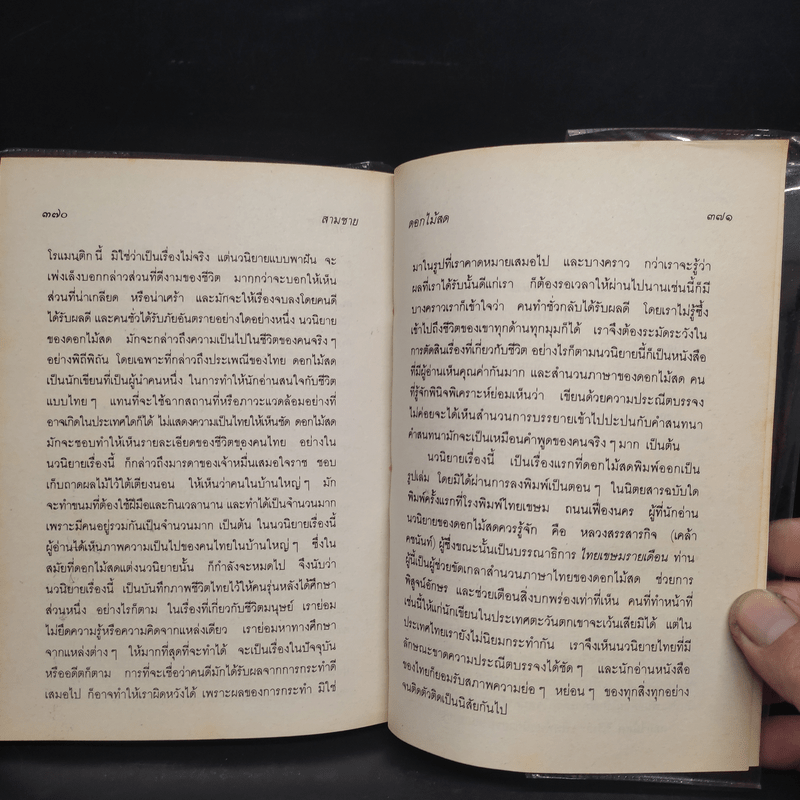 ๓๗๐
สามชาย
โรแมนติกนี้ มิใช่ว่าเป็นเรื่องไม่จริง แต่นวนิยายแบบพาฝัน จะ
เพ่งเล็งบอกกล่าวส่วนที่ดีงามของชีวิต มากกว่าจะบอกให้เห็น
ส่วนที่น่าเกลียด หรือน่าเศร้า และมักจะให้เรื่องจบลงโดยคนดี
ได้รับผลดี และคนชั่วได้รับภัยอันตรายอย่างใดอย่างหนึ่ง นวนิยาย
ของดอกไม้สด มักจะกล่าวถึงความเป็นไปในชีวิตของคนจริง ๆ
อย่างพิถีพิถัน โดยเฉพาะที่กล่าวถึงประเพณีของไทย ดอกไม้สด
เป็นนักเขียนที่เป็นผู้นำคนหนึ่ง ในการทำให้นักอ่านสนใจกับชีวิต
แบบไทย ๆ แทนที่จะใช้ฉากสถานที่หรือภาวะแวดล้อมอย่างที่
อาจเกิดในประเทศใดก็ได้ ไม่แสดงความเป็นไทยให้เห็นชัด ดอกไม้สด
มักจะชอบทำให้เห็นรายละเอียดของชีวิตของคนไทย อย่างใน
นวนิยายเรื่องนี้ ก็กล่าวถึงมารดาของเจ้าหมื่นเสมอใจราช ชอบ
เก็บถาดผลไม้ไว้ใต้เตียงนอน ให้เห็นว่าคนในบ้านใหญ่ ๆ มัก
จะทำขนมที่ต้องใช้ฝีมือและกินเวลานาน และทำได้เป็นจำนวนมาก
เพราะมีคนอยู่รวมกันเป็นจำนวนมาก เป็นต้น ในนวนิยายเรื่องนี้
ผู้อ่านได้เห็นภาพความเป็นไปของคนไทยในบ้านใหญ่ ๆ ซึ่งใน
สมัยที่ดอกไม้สดแต่งนวนิยายนั้น ก็กำลังจะหมดไป จึงนับว่า
นวนิยายเรื่องนี้ เป็นบันทึกภาพชีวิตไทยไว้ให้คนรุ่นหลังได้ศึกษา
ส่วนหนึ่ง อย่างไรก็ตาม ในเรื่องที่เกี่ยวกับชีวิตมนุษย์ เราย่อม
ไม่ยึดความรู้หรือความคิดจากแหล่งเดียว เราย่อมหาทางศึกษา
จากแหล่งต่าง ๆ ให้มากที่สุดที่จะทำได้ จะเป็นเรื่องในปัจจุบัน
หรืออดีตก็ตาม การที่จะเชื่อว่าคนดีมักได้รับผลจากการกระทำดี
เสมอไป ก็อาจทำให้เราผิดหวังได้ เพราะผลของการกระทำ มิใช่
ดอกไม้สด
๓๗๑
มาในรูปที่เราคาดหมายเสมอไป และบางคราว กว่าเราจะรู้ว่า
ผลที่เราได้รับนั้นดีแก่เรา ก็ต้องรอเวลาให้ผ่านไปนานเช่นนี้ก็มี
บางคราวเราก็เข้าใจว่า คนทำชั่วกลับได้รับผลดี โดยเราไม่รู้ซึ้ง
เข้าไปถึงชีวิตของเขาทุกด้านทุกมุมก็ได้ เราจึงต้องระมัดระวังใน
การตัดสินเรื่องที่เกี่ยวกับชีวิต อย่างไรก็ตามนวนิยายนี้ก็เป็นหนังสือ
ที่มีผู้อ่านเห็นคุณค่ากันมาก และสำนวนภาษาของดอกไม้สด คน
ที่รู้จักพินิจพิเคราะห์ย่อมเห็นว่า เขียนด้วยความประณีตบรรจง
ไม่ค่อยจะได้เห็นสำนวนการบรรยายเข้าไปปะปนกับคำสนทนา
คำสนทนามักจะเป็นเหมือนคำพูดของคนจริง ๆ มาก เป็นต้น
นวนิยายเรื่องนี้ เป็นเรื่องแรกที่ดอกไม้สดพิมพ์ออกเป็น
รูปเล่ม โดยมิได้ผ่านการลงพิมพ์เป็นตอน ๆ ในนิตยสารฉบับใด
พิมพ์ครั้งแรกที่โรงพิมพ์ไทยเขษม ถนนเฟื่องนคร ผู้ที่นักอ่าน
นวนิยายของดอกไม้สดควรรู้จัก คือ หลวงสรรสารกิจ (เคล้า
คชนันท์) ผู้ซึ่งขณะนั้นเป็นบรรณาธิการ ไทยเขษมรายเดือน ท่าน
ผู้นี้เป็นผู้ช่วยขัดเกลาสำนวนภาษาไทยของดอกไม้สด ช่วยการ
พิสูจน์อักษร และช่วยเตือนสิ่งบกพร่องเท่าที่เห็น คนที่ทำหน้าที่
เช่นนี้ให้แก่นักเขียนในประเทศตะวันตกเขาจะเว้นเสียมิได้ แต่ใน
ประเทศไทยเรายังไม่นิยมกระทำกัน เราจึงเห็นนวนิยายไทยที่มี
ลักษณะขาดความประณีตบรรจงได้ชัด ๆ และนักอ่านหนังสือ
ของไทยก็ยอมรับสภาพความย่อ ๆ หย่อน ๆ ของทุกสิ่งทุกอย่าง
จนติดตัวติดเป็นนิสัยกันไป